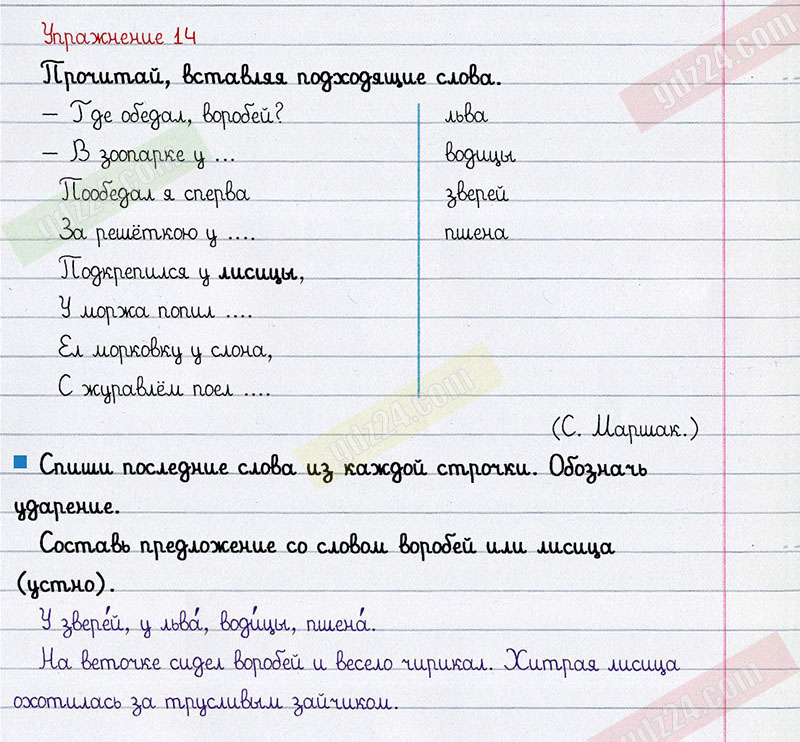 gdz24.com
Упражнение 14
Прочитай, вставляя подходящие слова.
– Где обедал, воробей? льва
– В зоопарке у ... водицы
Пообедал я сперва зверей
За решёткою у .... пшена
Подкрепился у лисицы,
У моржа попил ....
Ел морковку у слона,
С журавлём поел ....
(С. Маршак.)
Спиши последние слова из каждой строчки. Обозначь
ударение.
Составь предложение со словом воробей или лисица
(устно).
У звере́й, у льва́, води́цы, пшена́.
На веточке сидел воробей и весело чирикал. Хитрая лисица
охотилась за трусливым зайчиком.
gdz24.com
gdz24.com
gdz24.com